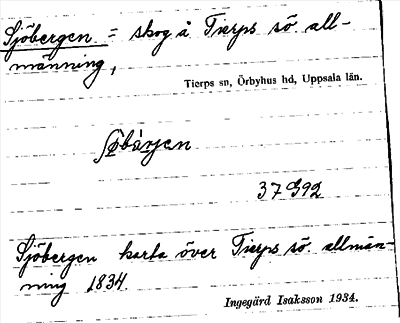 Sjöbergen = skog å Tierps sö. all-
männing,
Tierps sn, Örbyhus hd, Uppsala län.
37 G92
Sjöbergen karta över Tierps sö. allmän-
ning 1834.
Ingegärd Isaksson 1934.